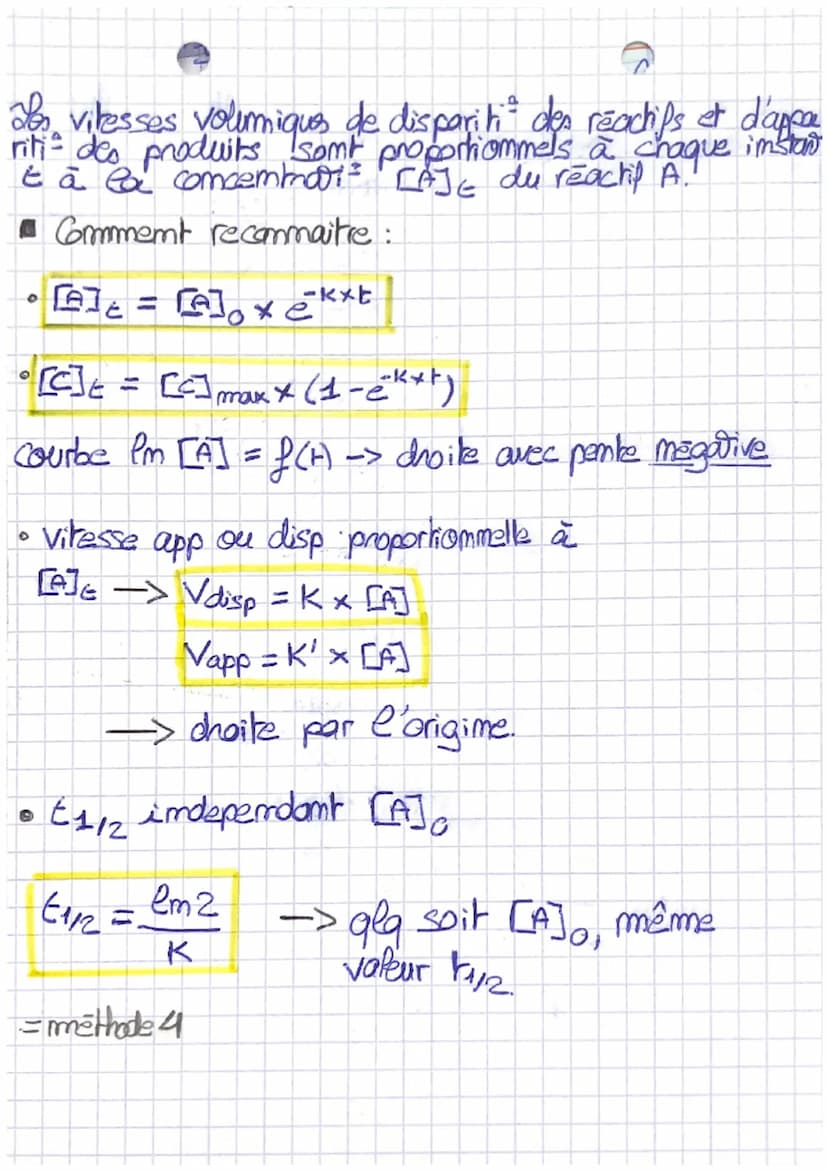 Les vitesses volumiques de dispariti° des réactifs et d'appa
riti° des produits sont proportionnels à chaque instant
t à la concentrati° [A]t du réactif A.
▪ Comment reconnaitre :
• [A]t = [A]0 × e^-k×t
• [C]t = [C]max × (1-e^-k×t)
courbe ln [A] = f(t) -> droite avec pente négative
• vitesse app ou disp proportionnelle à
[A]t -> Vdisp = K × [A]
Vapp = K' × [A]
-> droite par l'origine.
• t1/2 independant [A]0
t1/2 = ln2/K -> qlq soit [A]0, même
valeur t1/2.
= méthode 4